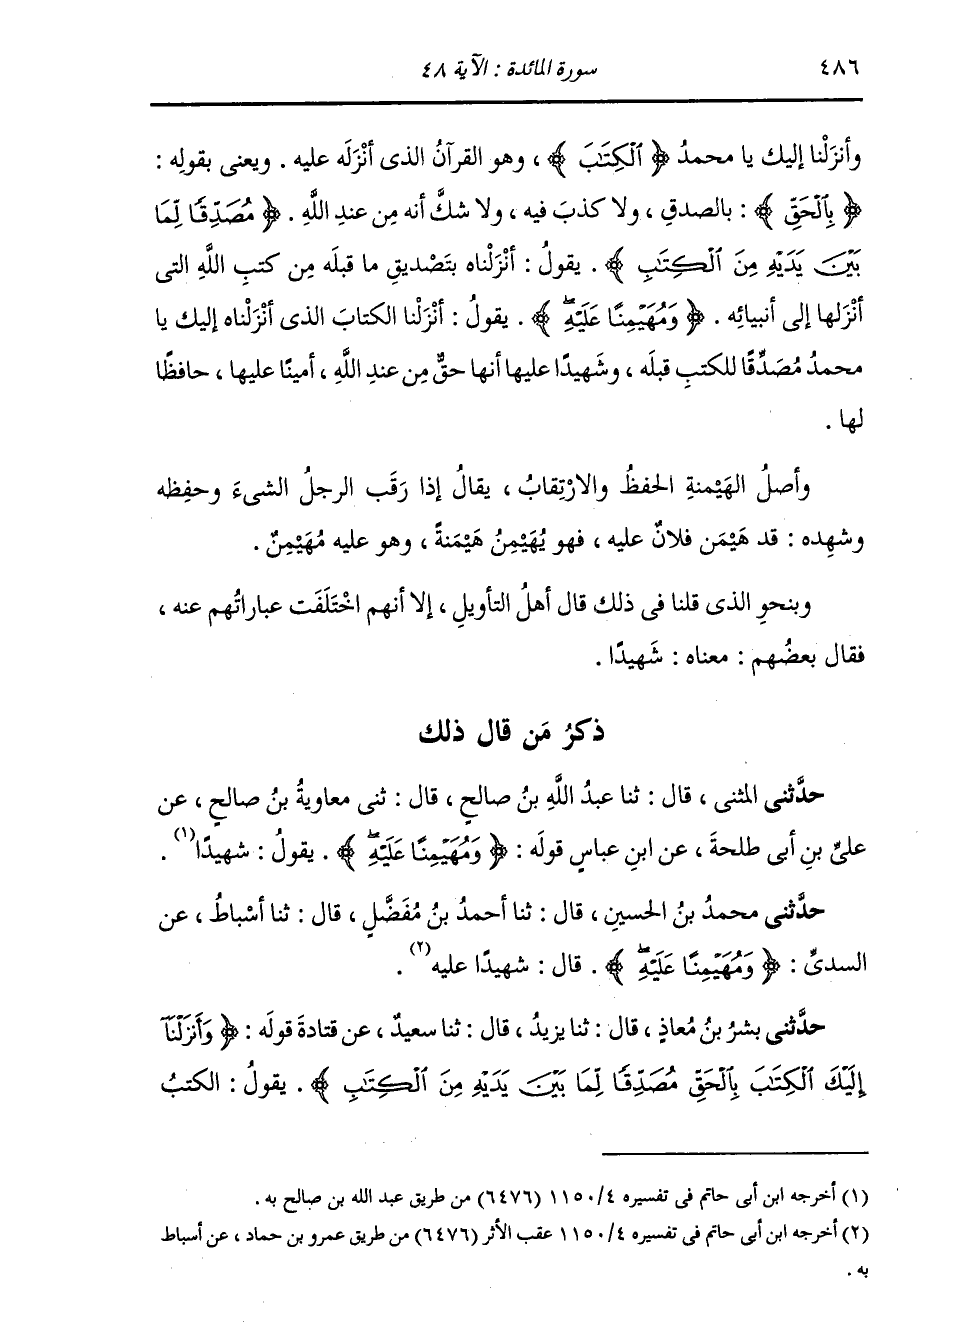 ٤٨٦ سورة المائدة : الآية ٤٨
وأنزَلْنا إليك يا محمدُ ﴿ ٱلْكِتَٰبَ ﴾ ، وهو القرآنُ الذى أنْزَلَه عليه . ويعنى بقولِه :
﴿ بِٱلْحَقِّ ﴾ : بالصدقِ ، ولا كذبَ فيه ، ولا شكَّ أنه مِن عندِ اللَّهِ . ﴿ مُصَدِّقًا لِّمَا
بَيْنَ يَدَيْهِ مِنَ ٱلْكِتَٰبِ ﴾ . يقولُ : أنْزَلْناه بتَصْديقِ ما قبلَه مِن كتبِ اللَّهِ التى
أنْزَلها إلى أنبيائِه . ﴿ وَمُهَيْمِنًا عَلَيْهِۖ ﴾ . يقولُ : أنْزَلنا الكتابَ الذى أنْزَلْناه إليك يا
محمدُ مُصَدِّقًا للكتبِ قبلَه ، وشَهيدًا عليها أنها حقٌّ مِن عندِ اللَّهِ ، أمينًا عليها ، حافظًا
لها .
وأصلُ الهَيْمنةِ الحفظُ والارْتِقابُ ، يقالُ إذا رَقَب الرجلُ الشىءَ وحفِظه
وشهِده : قد هَيْمَن فلانٌ عليه ، فهو يُهَيْمِنُ هَيْمَنةً ، وهو عليه مُهَيْمِنٌ .
وبنحوِ الذى قلنا فى ذلك قال أهلُ التأويلِ ، إلا أنهم اخْتَلَفَت عباراتُهم عنه ،
فقال بعضُهم : معناه : شَهيدًا .
ذكرُ مَن قال ذلك
حدَّثنى المثنى ، قال : ثنا عبدُ اللَّهِ بنُ صالحٍ ، قال : ثنى معاويةُ بنُ صالحٍ ، عن
علىِّ بنِ أبى طلحةَ ، عن ابنِ عباسٍ قولَه : ﴿ وَمُهَيْمِنًا عَلَيْهِۖ ﴾ . يقولُ : شهيدًا(١) .
حدَّثنى محمدُ بنُ الحسينِ ، قال : ثنا أحمدُ بنُ مُفَضَّلٍ ، قال : ثنا أسْباطُ ، عن
السدىِّ : ﴿ وَمُهَيْمِنًا عَلَيْهِۖ ﴾ . قال : شهيدًا عليه(٢) .
حدَّثنى بشرُ بنُ مُعاذٍ ، قال : ثنا يزيدُ ، قال : ثنا سعيدٌ ، عن قتادةَ قولَه : ﴿ وَأَنزَلْنَآ
إِلَيْكَ ٱلْكِتَٰبَ بِٱلْحَقِّ مُصَدِّقًا لِّمَا بَيْنَ يَدَيْهِ مِنَ ٱلْكِتَٰبِ ﴾ . يقولُ : الكتبُ
(١) أخرجه ابن أبى حاتم فى تفسيره ١١٥٠/٤ (٦٤٧٦) من طريق عبد الله بن صالح به .
(٢) أخرجه ابن أبى حاتم فى تفسيره ١١٥٠/٤ عقب الأثر (٦٤٧٦) من طريق عمرو بن حماد ، عن أسباط
به .